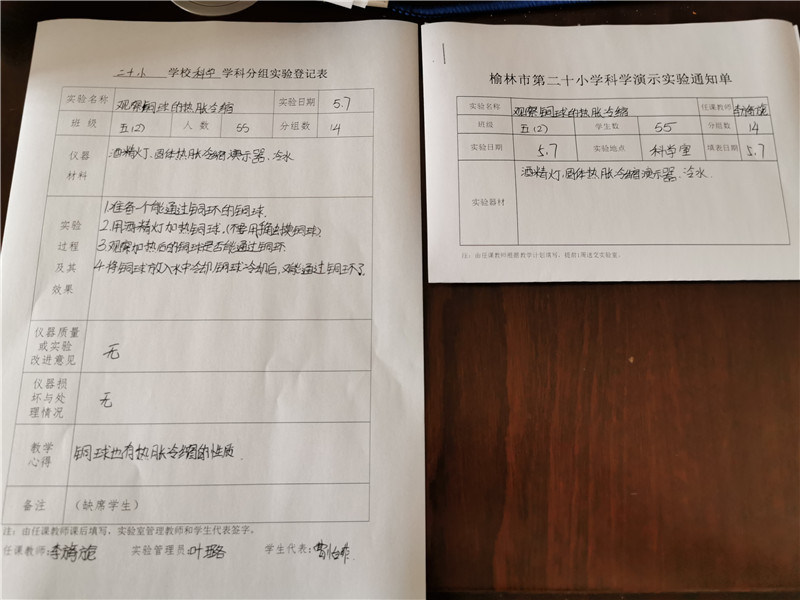 二十小 学校 科学 学科分组实验登记表
实验名称 观察铜球的热胀冷缩 实验日期 5.7
班级 五(2) 人数 55 分组数 14
仪器材料 酒精灯、固体热胀冷缩演示器、冷水
实验过程及其效果
1.准备一个能通过铜环的铜球.
2.用酒精灯加热铜球.(不要用手触摸铜球)
3.观察加热后的铜球是否能通过铜环
4.将铜球放入水中冷却,铜球冷却后,又能通过铜环了
仪器质量或实验改进意见 无
仪器损坏与处理情况 无
教学心得 铜球也有热胀冷缩的性质.
备注 (缺席学生)
注:由任课教师课后填写、实验室管理教师和学生代表签字。
任课教师: 实验管理员:叶璐 学生代表:
榆林市第二十小学科学演示实验通知单
实验名称 观察铜球的热胀冷缩 任课教师
班级 五(2) 学生数 55 分组数 14
实验日期 5.7 实验地点 科学室 填表日期 5.7
实验器材 酒精灯、固体热胀冷缩演示器、冷水.
注:由任课教师根据教学计划填写,提前1周送交实验室。